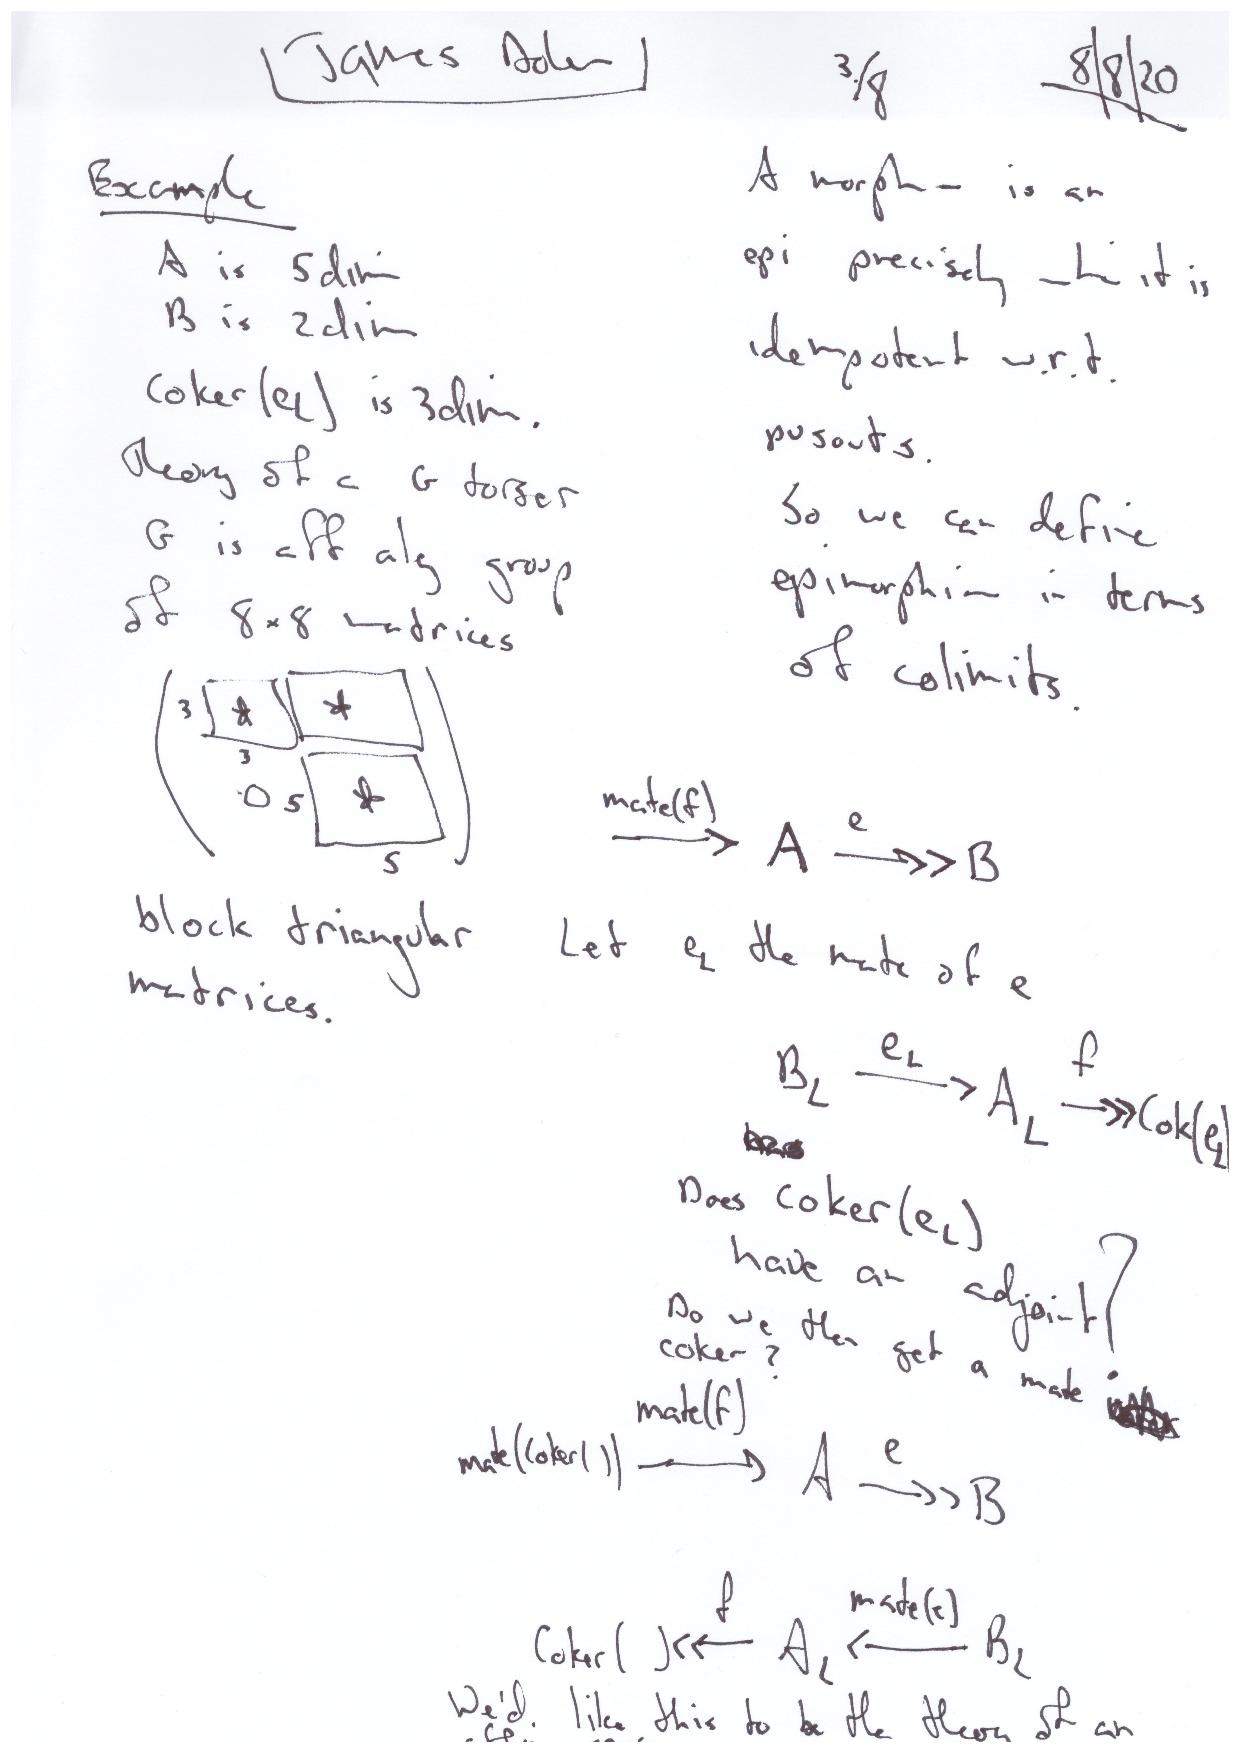 James Dolan
3/8
8/8/20
Example
A is 5dim
B is 2dim
Coker(e_L) is 3dim.
theory of a G torser
G is aff alg group
of 8×8 matrices
3 * *
3
0 5 *
5
block triangular
matrices.
A morph- is an
epi precisely when it is
idempotent w.r.t.
pusouts.
So we can define
epimorphism in terms
of colimits.
mate(f) A e B
Let e_L the mate of e
B_L e_L A_L f Cok(e_L)
Does coker(e_L)
have an adjoint?
Do we then get a mate
coker?
mate(f)
mate(coker( )) A e B
f mate(e)
Coker( ) A_L B_L
We'd like this to be the theory of an